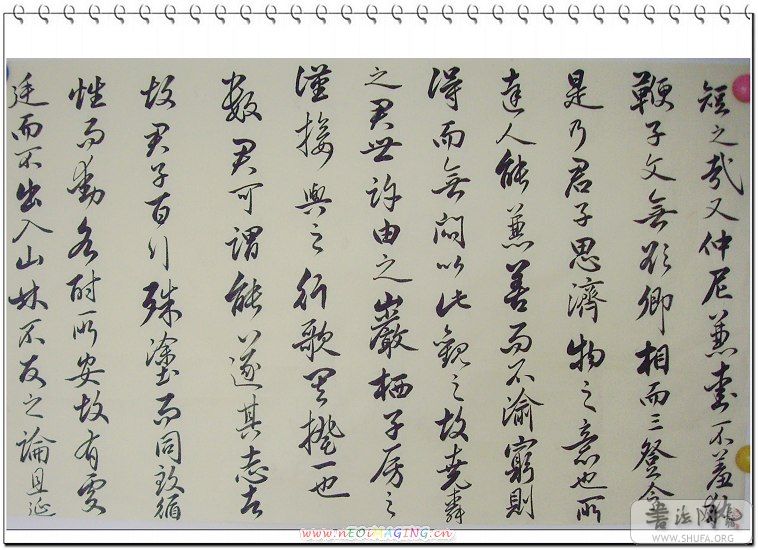 短之哉又仲尼兼愛不羞執
鞭子文無欲卿相而三登令
是乃君子思濟物之意也所
達人能兼善而不渝窮則
得而無悶以此觀之故堯舜
之君世許由之巖栖子房之
漢接輿之行歌其揆一也
數君可謂能遂其志者
故君子百行殊塗而同致循
性而動各附所安故有處
廷而不出入山林不反之論且延
書法网
WWW.SHUFA.ORG
www.nEOiMAGING.cn